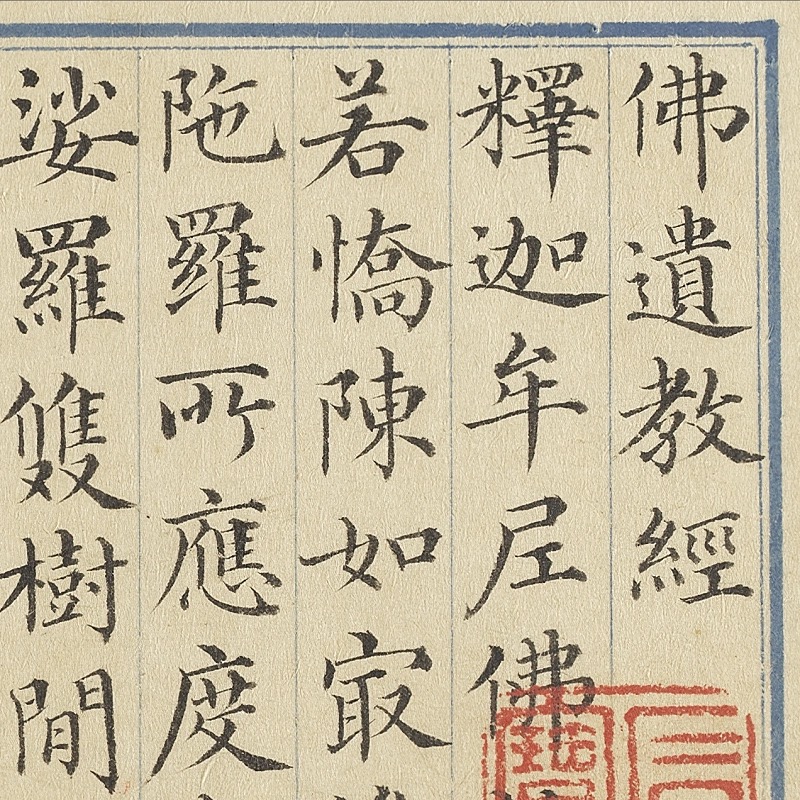 佛遺教經
釋迦牟𡰱佛
若憍陳如㝡
陁羅所應度
娑羅雙樹間